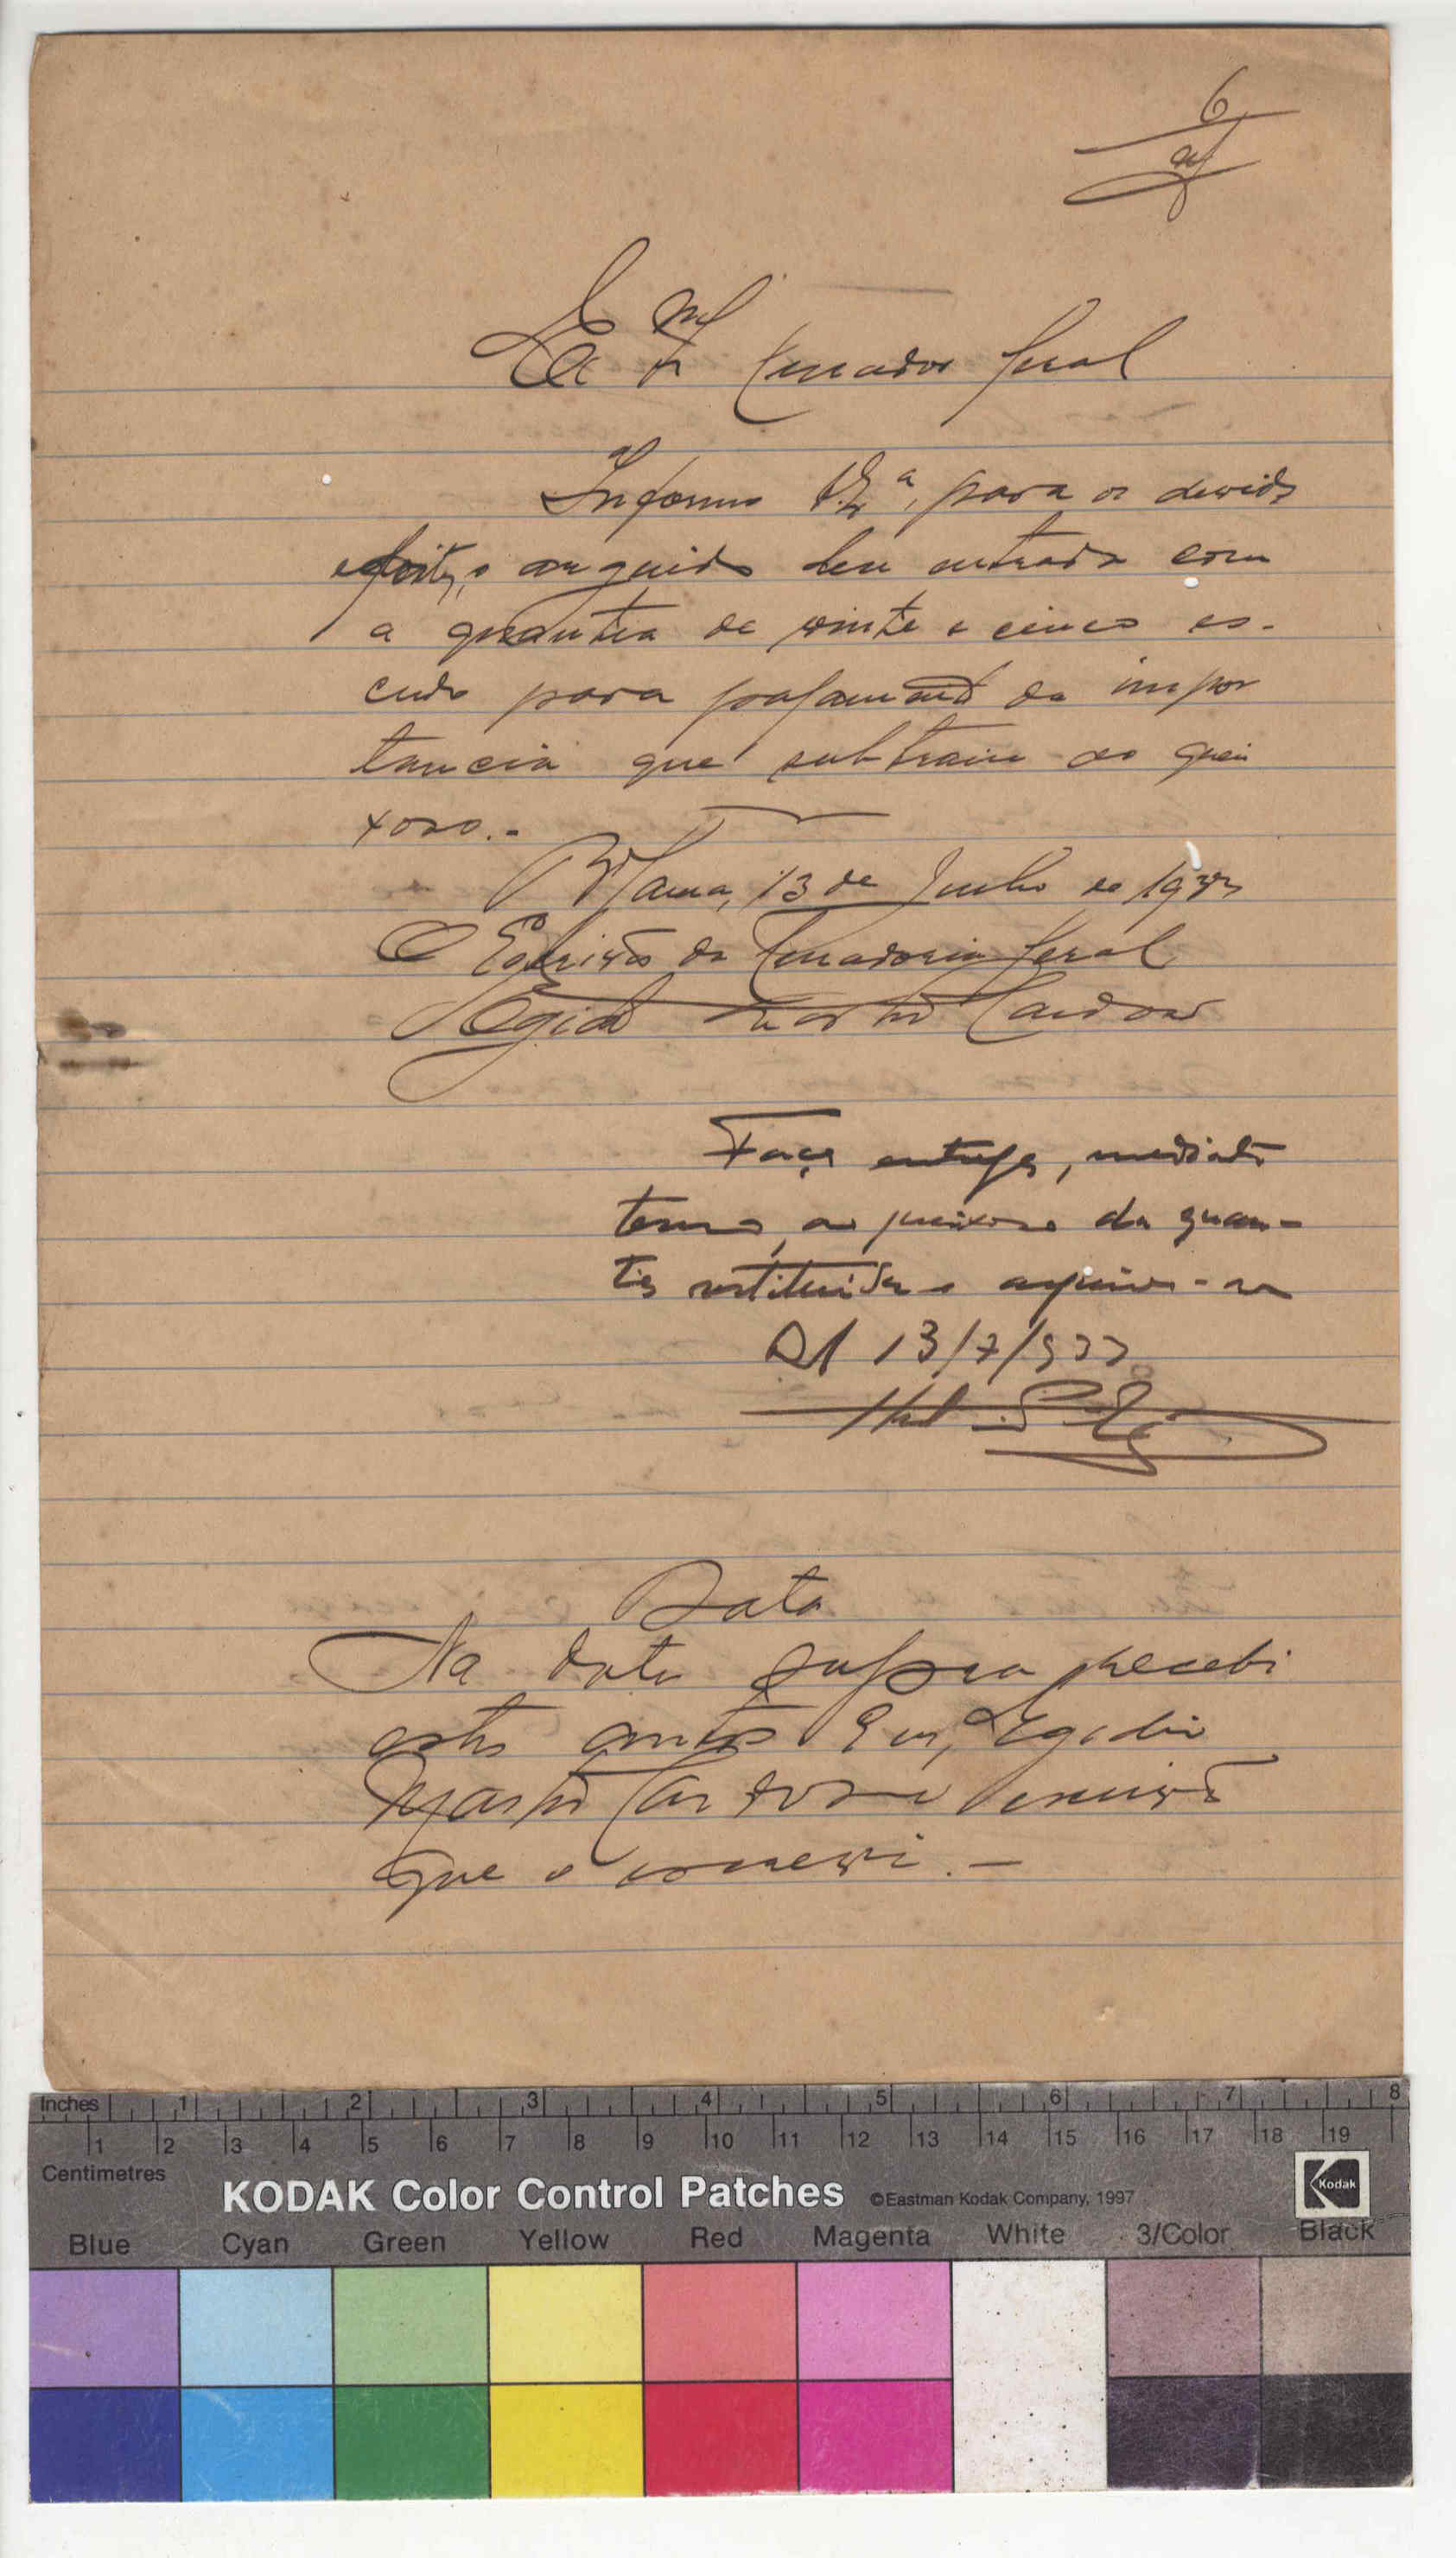 6
Ex.mo Sr. Curador Geral
Informo V. Ex.a, para os devidos
efeitos, o arguido deu entrada com
a quantia de vinte e cinco es-
cudos para pagamento da impor
tancia que subtraiu ao quei
xoso.-
13 de Julho de 1933
O Escrivão da Curadoria Geral
Egidio Cardoso
Faça entrega, mediante
termo, ao queixoso da quan-
tia restituida e arquive-se
13/7/933
Data
Na data supra recebi
estes autos Eu, Egidio
Cardoso escrivão
que o escrevi.-
Inches 1 2 3 4 5 6 7 8
1 2 3 4 5 6 7 8 9 10 11 12 13 14 15 16 17 18 19
Centimetres
KODAK Color Control Patches ©Eastman Kodak Company, 1997 Kodak
Blue Cyan Green Yellow Red Magenta White 3/Color Black